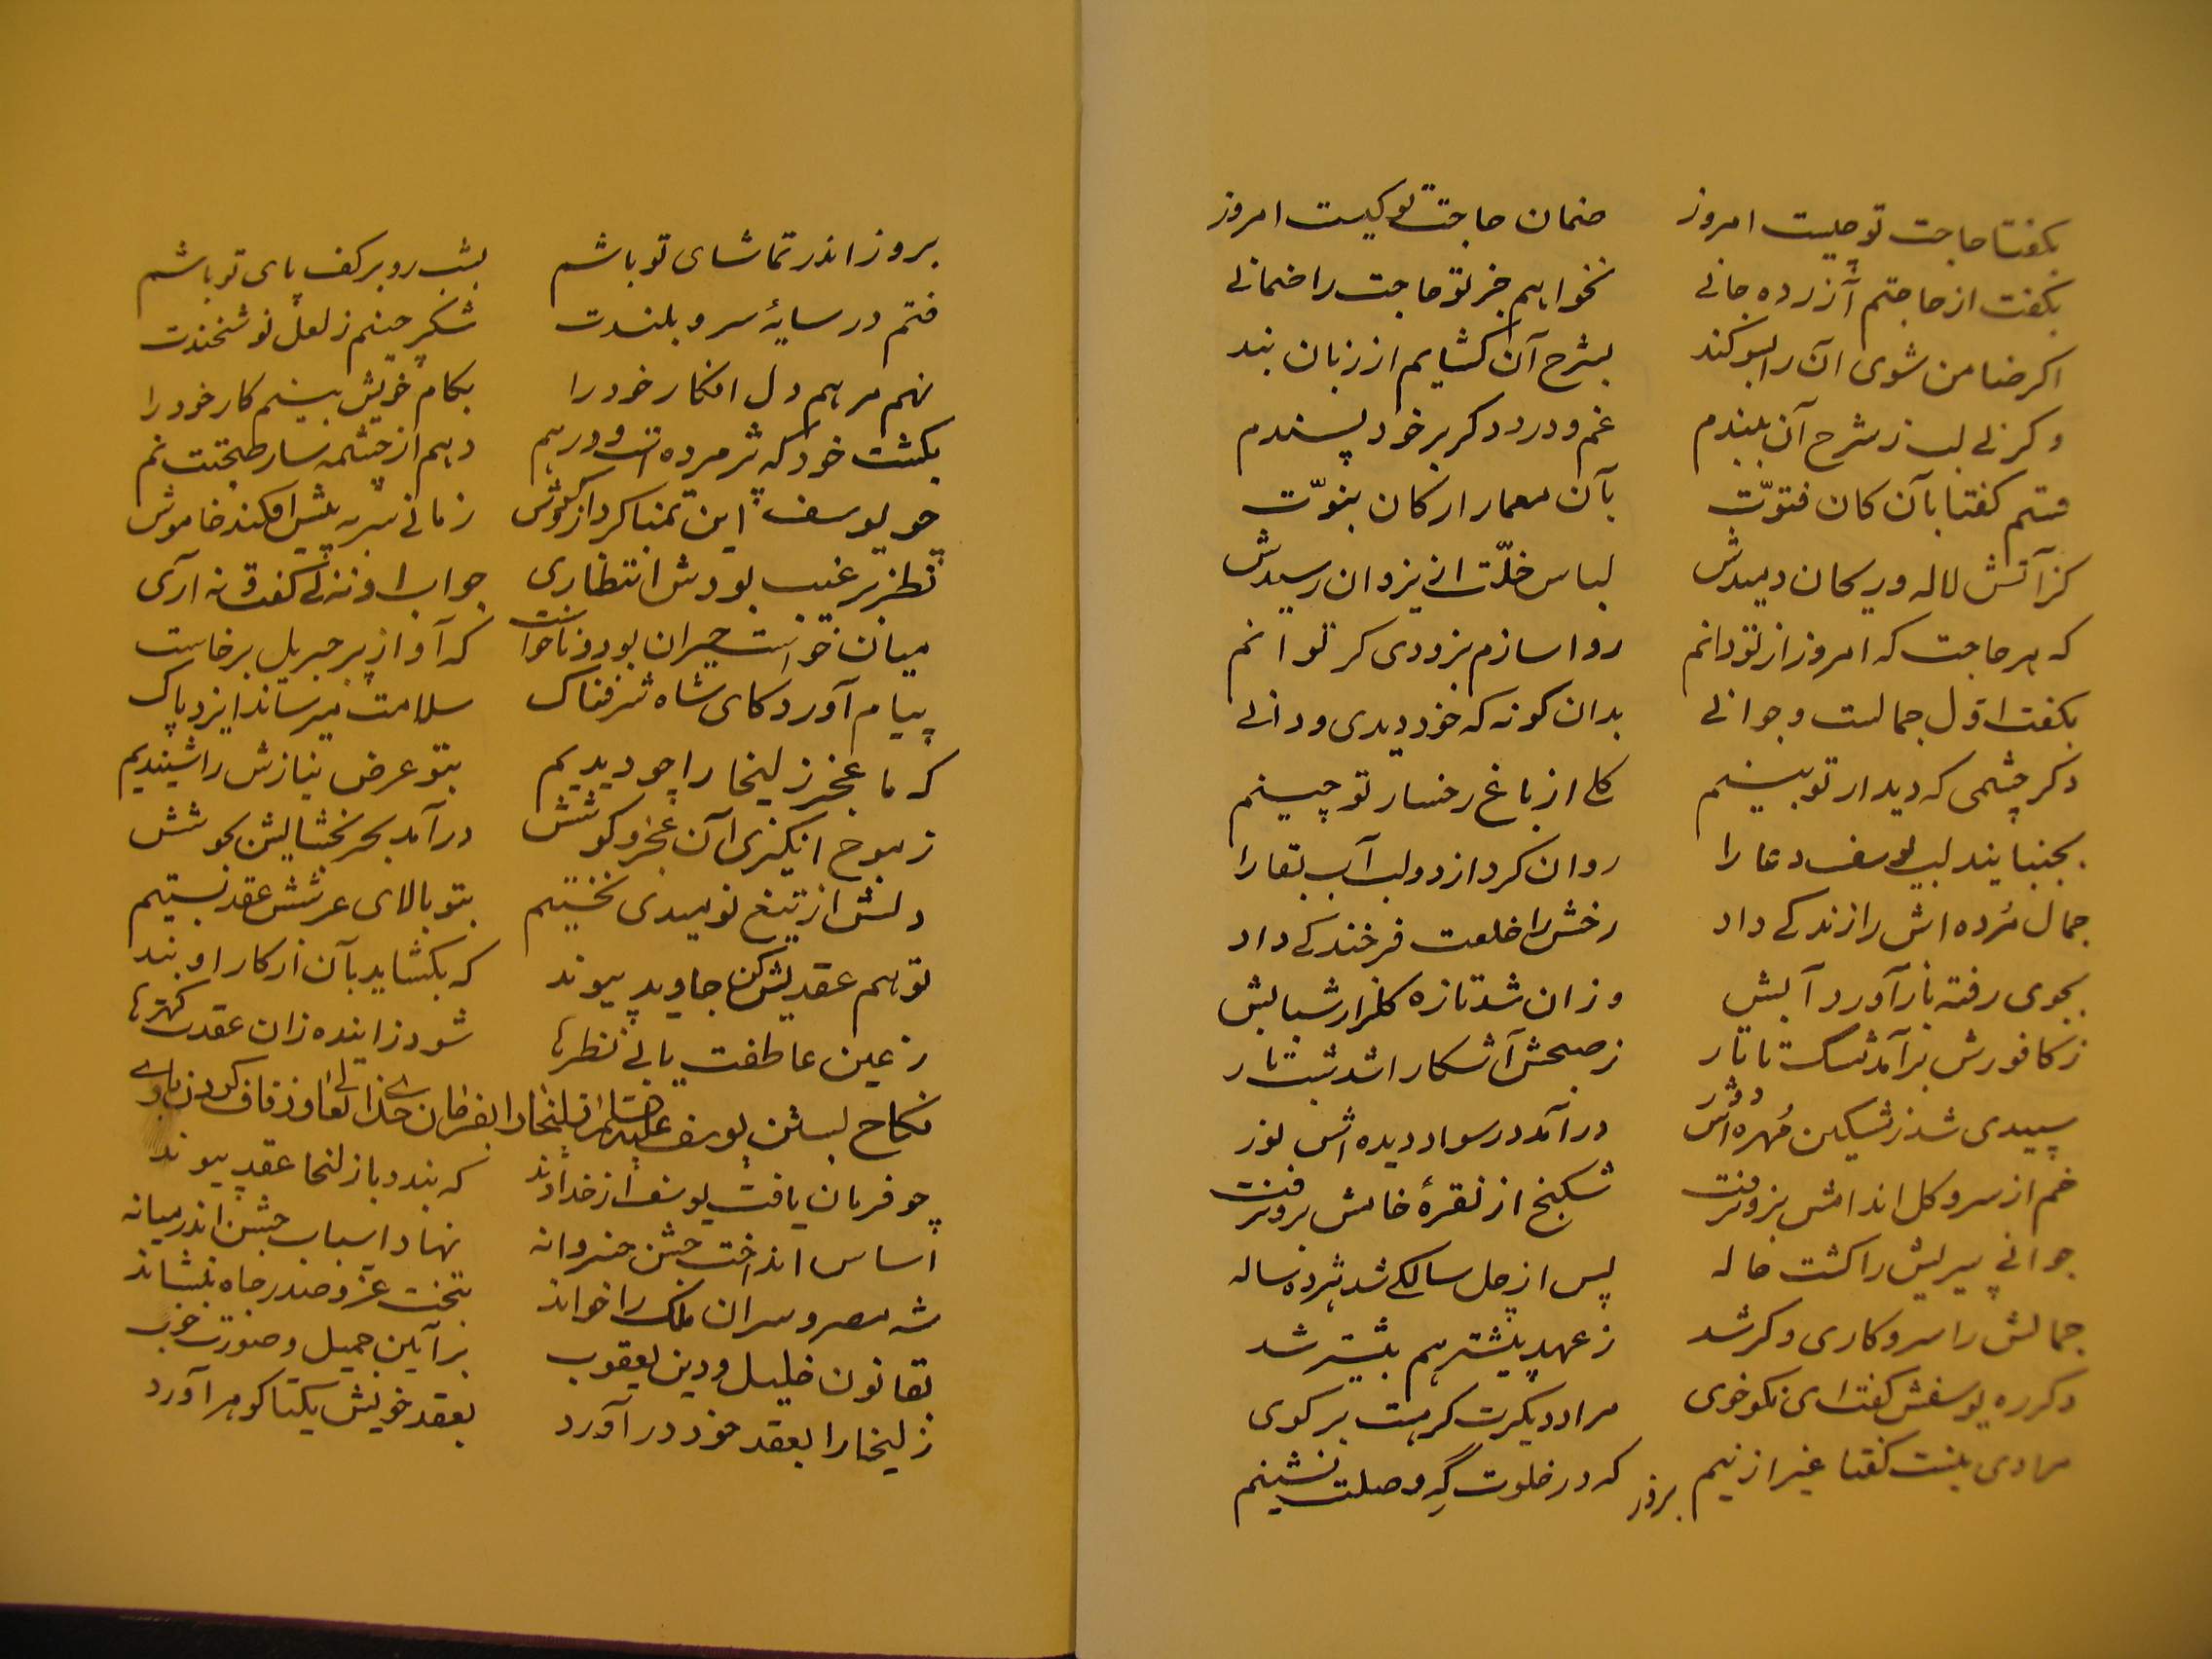 بکفتا حاجت تو چیست امروز ضمان حاجت تو کیست امروز
بکفت از حاجتم آزرده جانی نخواهم جز تو حاجت را ضمانی
اکر ضامن شوی آن را بسوکند بشرح آن کشایم از زبان بند
وکر نی لب ز شرح آن ببندم غم و درد دکر بر خود پسندم
قسم کفتا بآن کان فتوّت بآن معمار ارکان نبوّت
کز آتش لاله و ریحان دمیدش لباس خلّت از یزدان رسیدش
که هر حاجت که امروز از تو دانم روا سازم بزودی کر توانم
بکفت اول جمالست و جوانی بدان کونه که خود دیدی و دانی
دکر چشمی که دیدار تو بینم کلی از باغ رخسار تو چینم
بجنبانید لب یوسف دعا را روان کرد از دو لب آب بقا را
جمال مُرده اش را زندکی داد رخش را خلعت فرخندکی داد
بجوی رفته باز آورد آبش وزان شد تازه کلزار شبابش
ز کافورش برآمد مشک تاتار ز صبحش آشکارا شد شب تار
سپیدی شد ز مشکین مُهره اش دور درآمد در سواد دیده اش نور
خم از سرو کل اندامش برون رفت شکنج از نقرهٔ خامش برون رفت
جوانی پیریش را کشت هاله پس از چل سالکی شد هژده ساله
جمالش را سر و کاری دکر شد ز عهد پیشتر هم بیشتر شد
دکر ره یوسفش کفت ای نکوخوی مراد دیکرت کر هست بر کوی
مرادی نیست کفتا غیر ازینم که در خلوت گه وصلت نشینم
بروز
بروز اندر تماشای تو باشم بشب رو بر کف پای تو باشم
فتم در سایهٔ سرو بلندت شکر چینم ز لعل نوشخندت
نهم مرهم دل افکار خود را بکام خویش بینم کار خود را
بکشت خود که پژمرده است و درهم دهم از چشمه سار صحبتت نم
چو یوسف این تمنا کرد ازو کوش زمانی سر به پیش افکند خاموش
نظر بر غیب بودش انتظاری جواب او نه نی کفت و نه آری
میان خواست حیران بود و ناخواست که آواز پر جبریل برخاست
پیام آورد کای شاه شرفناک سلامت میرساند ایزد پاک
که ما عجز زلیخا را چو دیدیم بتو عرض نیازش را شنیدیم
ز موج انکیزی آن عجز و کوشش درآمد بحر بخشایش بجوشش
دلش از تیغ نومیدی نخستیم بتو بالای عرشش عقد بستیم
تو هم عقدیش کن جاوید پیوند که بکشاید بآن از کار او بند
ز عین عاطفت یابی نظرها شود زاینده زان عقدت کهرها
نکاح بستن یوسف علیه السلام زلیخا را بفرمان خدای تعالی و زفاف کردن با وی
چو فرمان یافت یوسف از خداوند که بندد با زلیخا عقد پیوند
اساس انداخت جشن خسروانه نهاد اسباب جشن اندر میانه
شه مصر و سران ملک را خواند بتخت عز و صدر جاه بنشاند
بقانون خلیل و دین یعقوب بر آیین جمیل و صورت خوب
زلیخا را بعقد خود درآورد بعقد خویش یکتا کوهر آورد